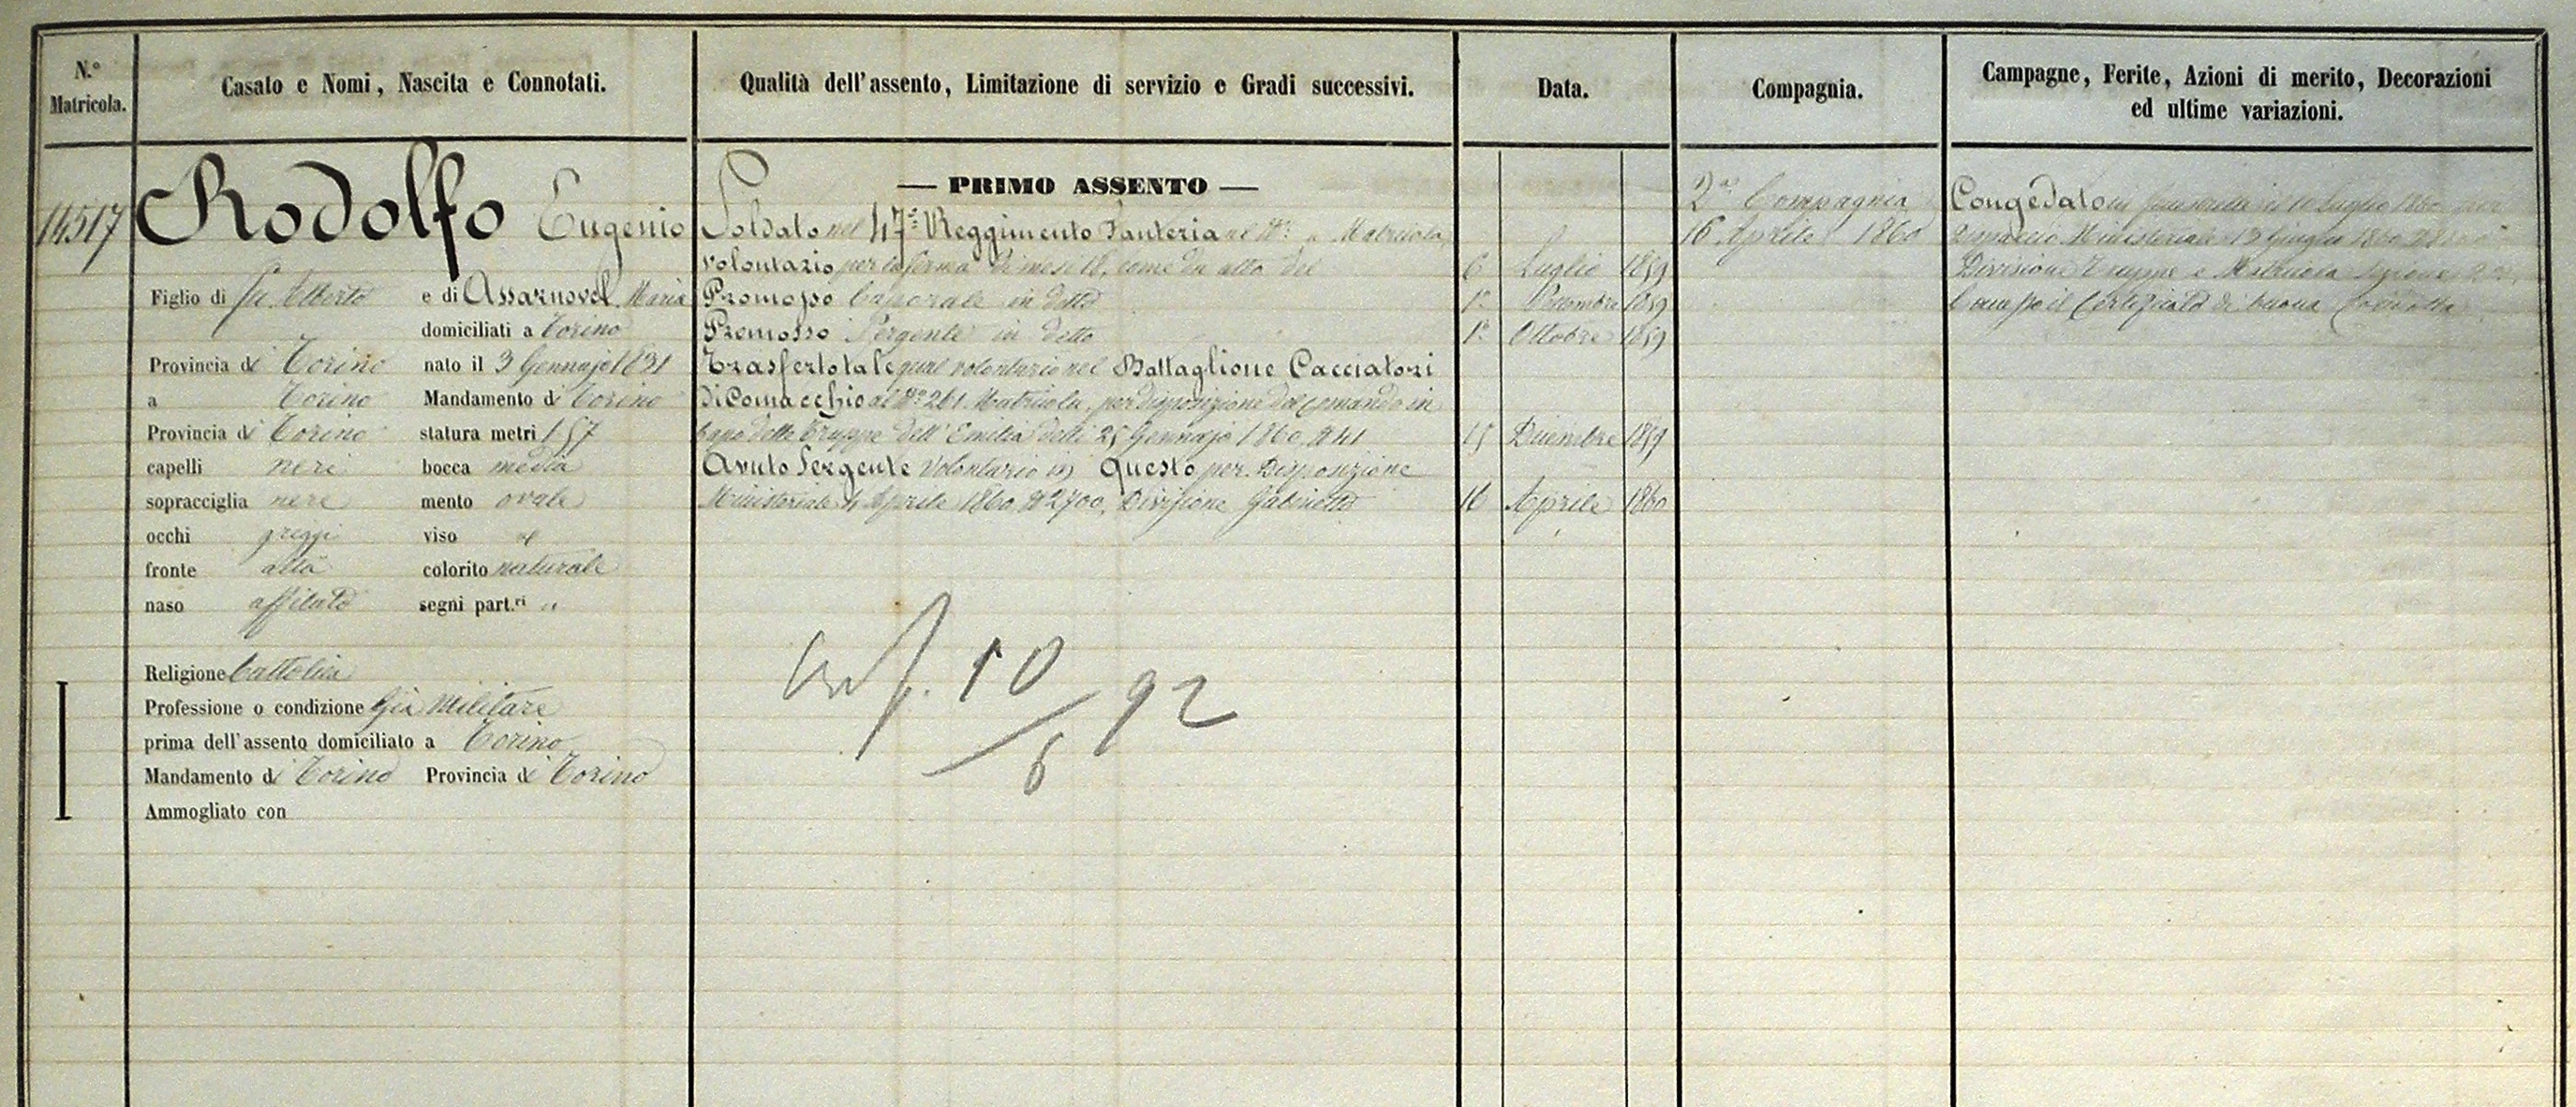 N.° Matricola.
Casato e Nomi, Nascita e Connotati.
Qualità dell'assento, Limitazione di servizio e Gradi successivi.
Data.
Compagnia.
Campagne, Ferite, Azioni di merito, Decorazioni
ed ultime variazioni.
14517
Rodolfo Eugenio
Figlio di fu Alberto e di Assarnovel Maria
domiciliati a Torino
Provincia di Torino nato il 3 Gennajo 1831
a Torino Mandamento di Torino
Provincia di Torino statura metri 1 57
capelli neri bocca media
sopracciglia nere mento ovale
occhi griggi viso
fronte alta colorito naturale
naso affilato segni part.ri "
Religione Cattolica
Professione o condizione Già Militare
prima dell'assento domiciliato a Torino
Mandamento di Torino Provincia di Torino
Ammogliato con
— PRIMO ASSENTO —
Soldato nel 47° Reggimento Fanteria al N° " Matricola
volontario per la ferma di mesi 18, come da atto del 6 Luglio 1859
Promosso Caporale in detto 1° 1859
Promosso Sergente in detto 1° Ottobre 1859
Trasferto tale qual volontario nel Battaglione Cacciatori
di Comacchio al N° 261 Matricola, per disposizione del Comando in
capo delle Truppe dell'Emilia delli 25 Gennajo 1860, N 41 15 Dicembre 1859
Avuto Sergente Volontario in Questo per Disposizione
Ministeriale 4 Aprile 1860 N 2700, Divisione Gabinetto 16 Aprile 1860
2a Compagnia
16 Aprile 1860
Congedato in li 10 Luglio 1860 per
Dispaccio Ministeriale 13 Giugno 1860
Divisione Truppe e Matricola Sezione
il Certificato di buona Condotta
10/6 92